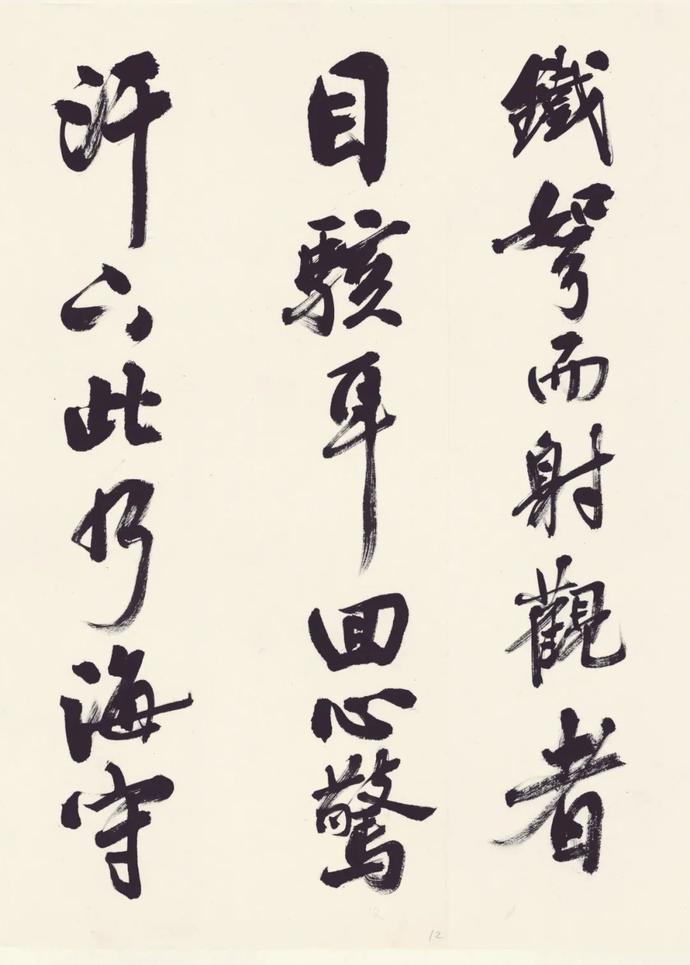 鐵弩而射觀者
目駭耳回心驚
汗下此乃海宇
12